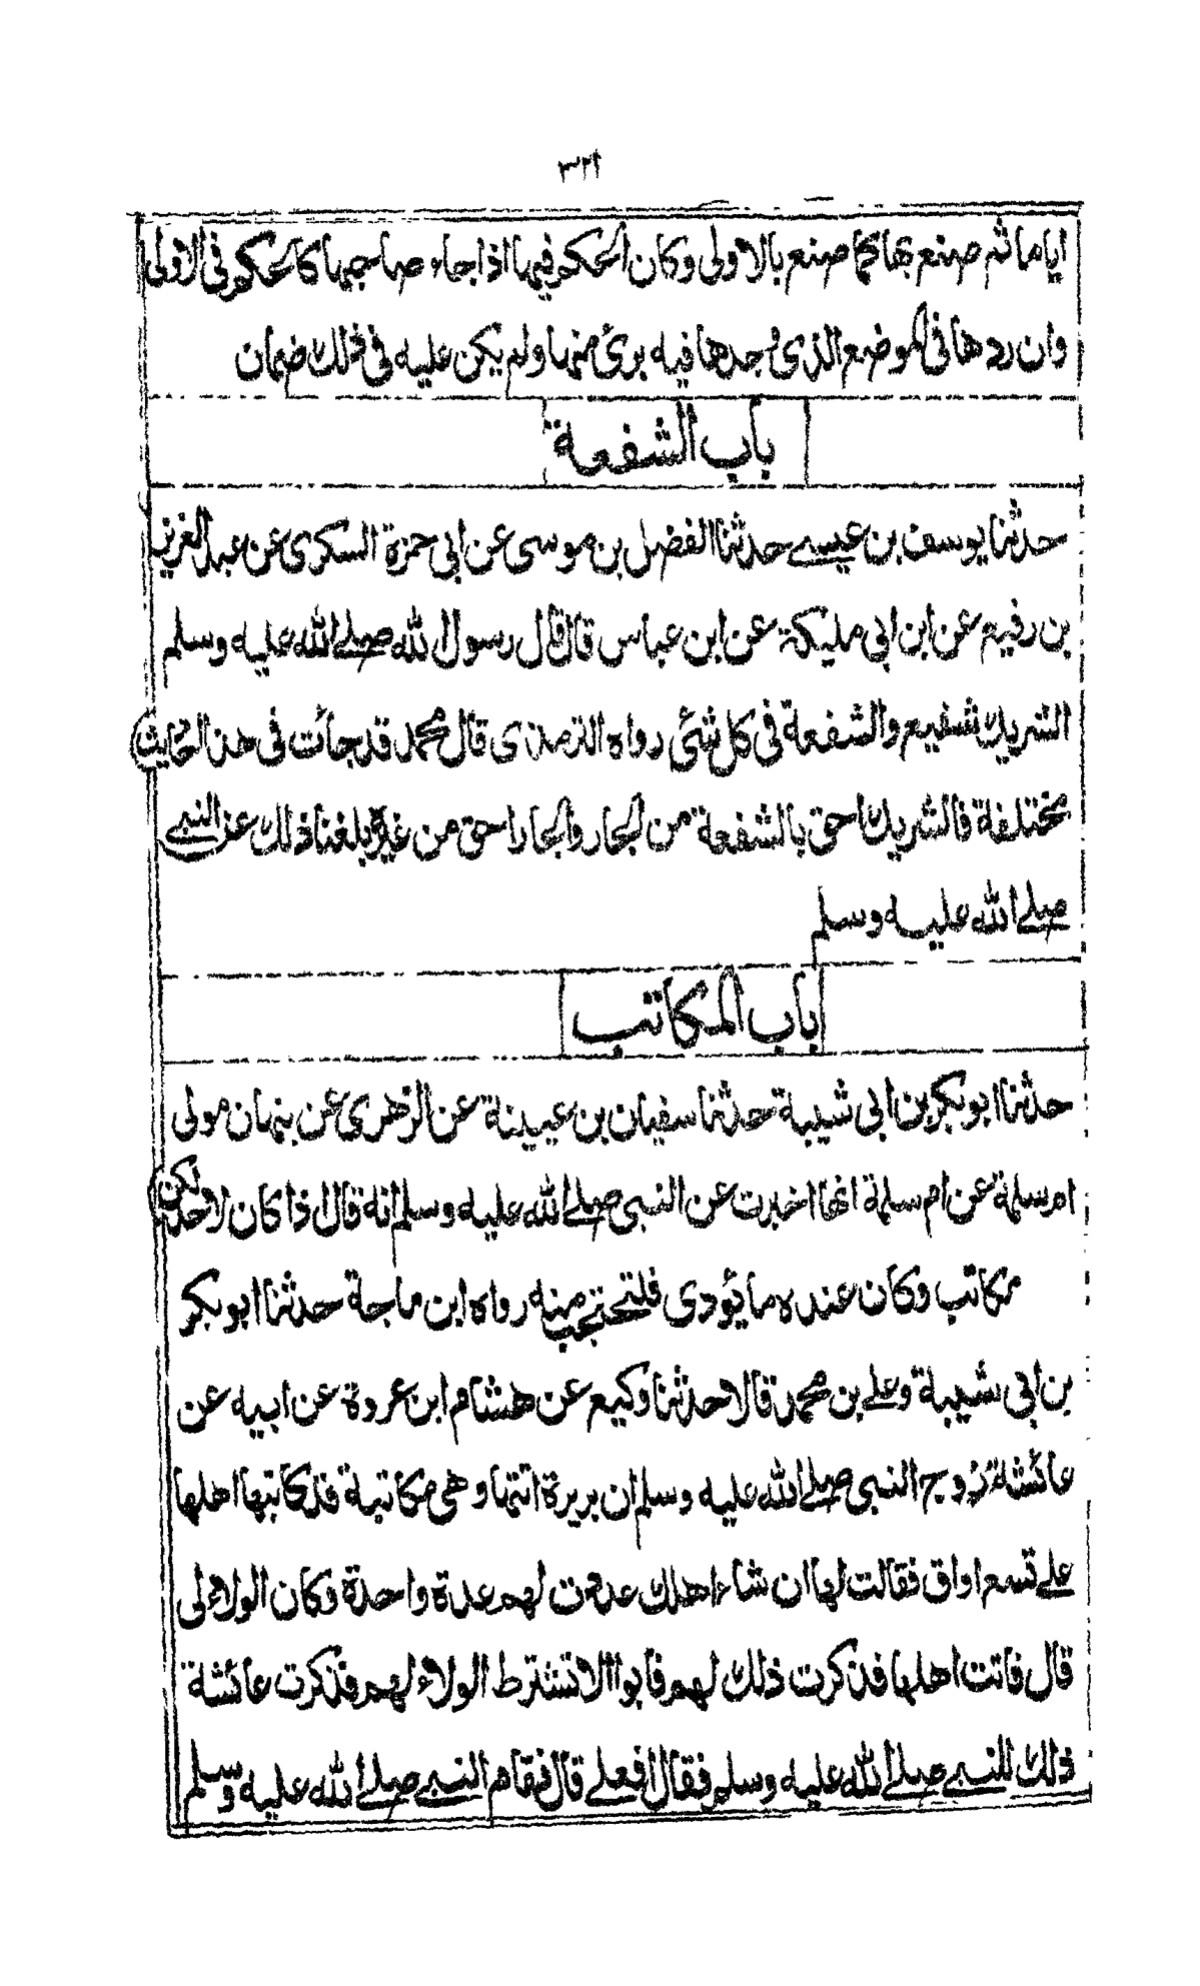 ٣٢١
اياما ثم صنع بها كما صنع بالاولى وكان الحكم فيها اذا جاء صاحبها كالحكم فى الاولى
وان ردها فى الموضع الذى وجدها فيه برئ منها ولم يكن عليه فى ذلك ضمان
باب الشفعة
حدثنا يوسف بن عيسے حدثنا الفضل بن موسى عن ابى حمزة السكرى عن عبد العزيز
بن رفيع عن ابن ابى مليكة عن ابن عباس قال قال رسول الله صلے الله عليه وسلم
الشريك شفيع والشفعة فى كل شئى رواه الترمذى قال محمد قد جاءت فى هذا احاديث
مختلفة فالشريك احق بالشفعة من الجار والجار احق من غيره بلغنا ذلك عن النبے
صلے الله عليه وسلم
باب المكاتب
حدثنا ابو بكر بن ابى شيبة حدثنا سفيان بن عيينة عن الزهرى عن بنهان مولى
ام سلمة عن ام سلمة انها اخبرت عن النبى صلے الله عليه وسلم انه قال اذا كان لاحدكن
مكاتب وكان عنده ما يؤدى فلتحتجب منه رواه ابن ماجة حدثنا ابو بكر
بن ابى شيبة وعلے بن محمد قالا حدثنا وكيع عن هشام ابن عروة عن ابيه عن
عائشة زوج النبى صلے الله عليه وسلم ان بريرة اتتها وهى مكاتبة قد كاتبها اهلها
علے تسع اواق فقالت لها ان شاء اهلك عددت لهم عدة واحدة وكان الولاء لى
قال فاتت اهلها فذكرت ذلك لهم فابوا الا تشترط الولاء لهم فذكرت عائشة
ذلك للنبے صلے الله عليه وسلم فقال افعلے قال فقام النبے صلے الله عليه وسلم